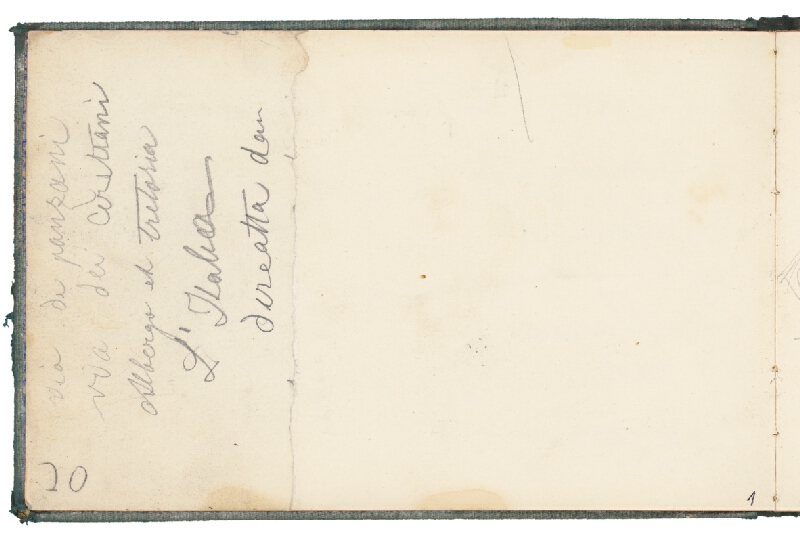 via di panzani
via dei Ceretani
Albergo et tretoria
L'Italia
direatta dau
20
1